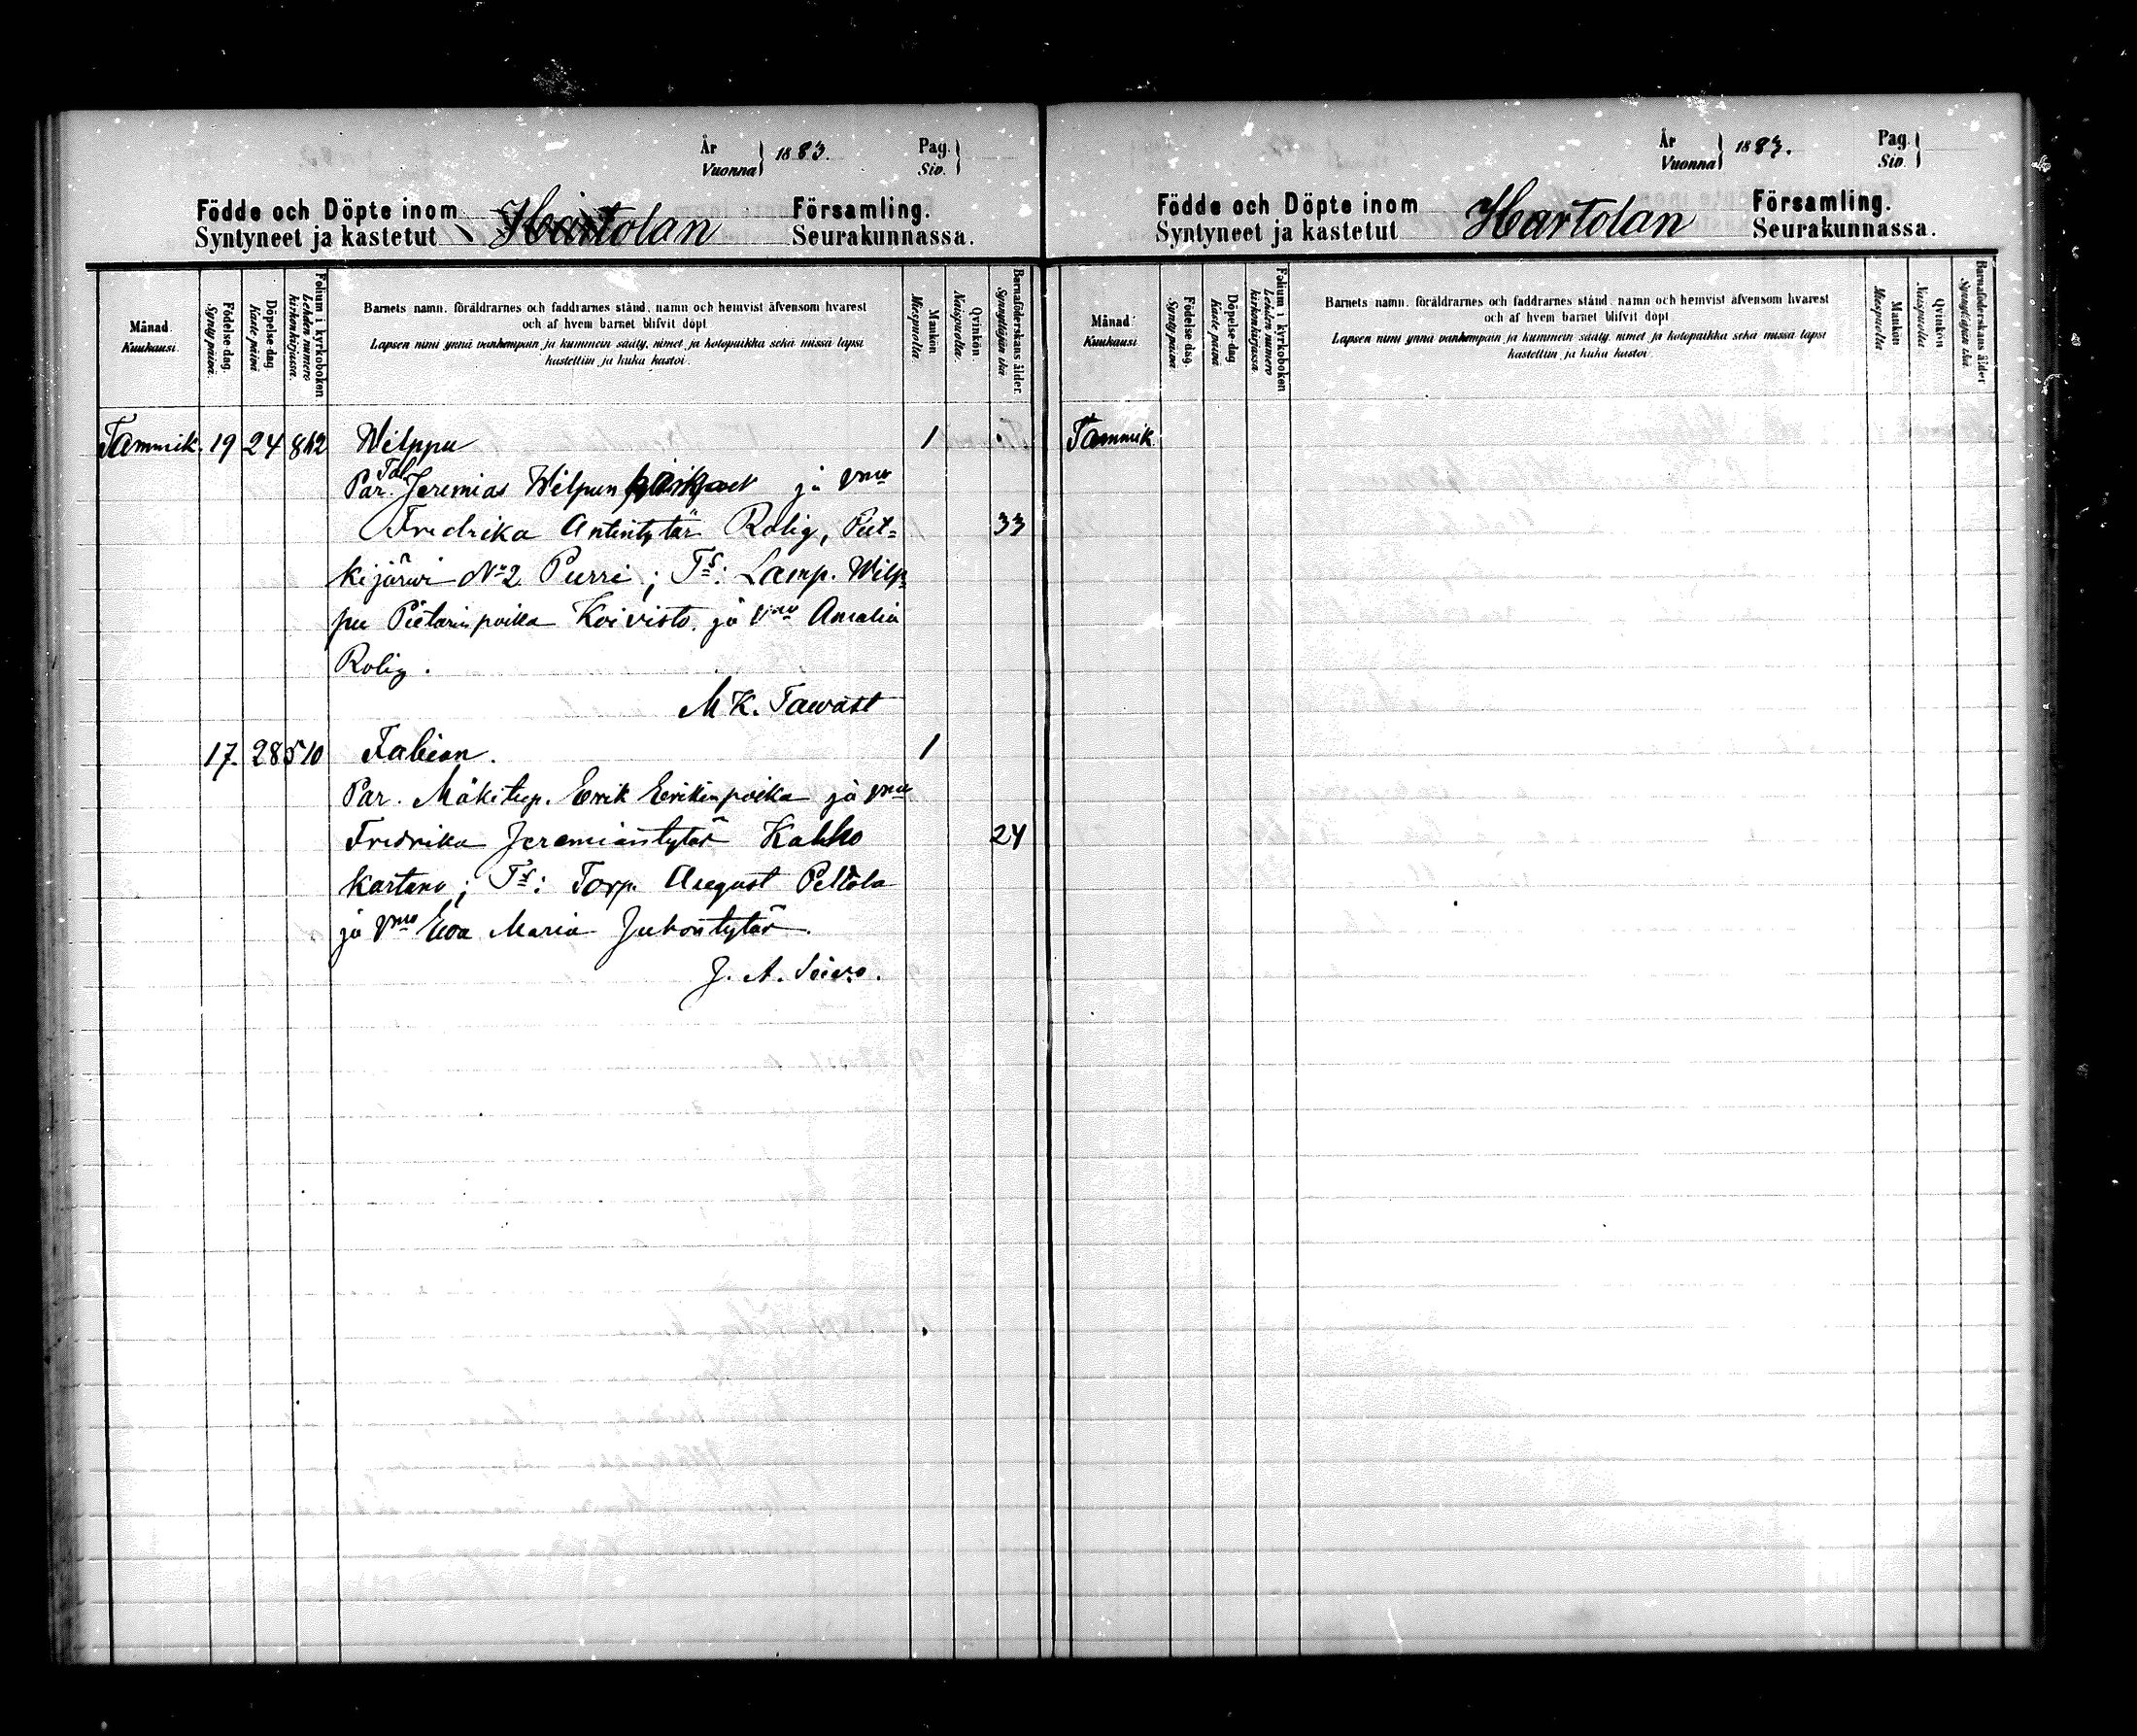 År
Vuonna } 1883.
Pag.
Siv. }
Födde och Döpte inom
Syntyneet ja kastetut
Hartolan
Församling.
Seurakunnassa.
Månad.
Kuukausi.
Födelse-dag.
Syntypäivä.
Döpelse-dag.
Kaste päivä
Folium i kyrkoboken
Lehden numero kirkonkirjassa.
Barnets namn, föräldrarnes och faddrarnes stånd, namn och hemvist äfvensom hvarest
och af hvem barnet blifvit döpt.
Lapsen nimi ynnä vanhempain ja kummein sääty, nimet ja kotopaikka sekä missä lapsi
kastettiin ja kuka kastoi.
Mankön
Miespuolta
Qvinkön
Naispuolta.
Barnaföderskans ålder.
Synnyttäjän ikä
Tammik. 19 24 812 Wilppu 1
Par. Tal. Jeremias Wilpun ja vmo
Fredrika Antintytär Rolig, Put= 33
kijärwi No 2 Purri; Ts: Lamp. Wilp=
pu Pietarinpoika Koivisto ja vmo Amalia
Rolig.
M K. Tawast
17. 28 510 Fabian. 1
Par. Mäkitup. Erik Erikinpoika ja vmo
Fredrika Jeremiantytär Kahko 24
kartano; Ts: Torp. August Peltola
ja vmo Eva Maria Juhontytär.
J. A.
År
Vuonna } 1883.
Pag.
Siv. }
Födde och Döpte inom
Syntyneet ja kastetut
Hartolan
Församling.
Seurakunnassa.
Månad
Kuukausi
Födelse-dag.
Syntypäivä.
Döpelse-dag
Kaste päivä
Folium i kyrkoboken
Lehden numero kirkonkirjassa.
Barnets namn, föräldrarnes och faddrarnes stånd, namn och hemvist äfvensom hvarest
och af hvem barnet blifvit döpt
Lapsen nimi ynnä vanhempain ja kummein sääty, nimet ja kotopaikka sekä missä lapsi
kastettiin ja kuka kastoi
Mankön
Miespuolta
Qvinkön
Naispuolta
Barnaföderskans ålder
Synnyttäjän ikä.
Tammik.